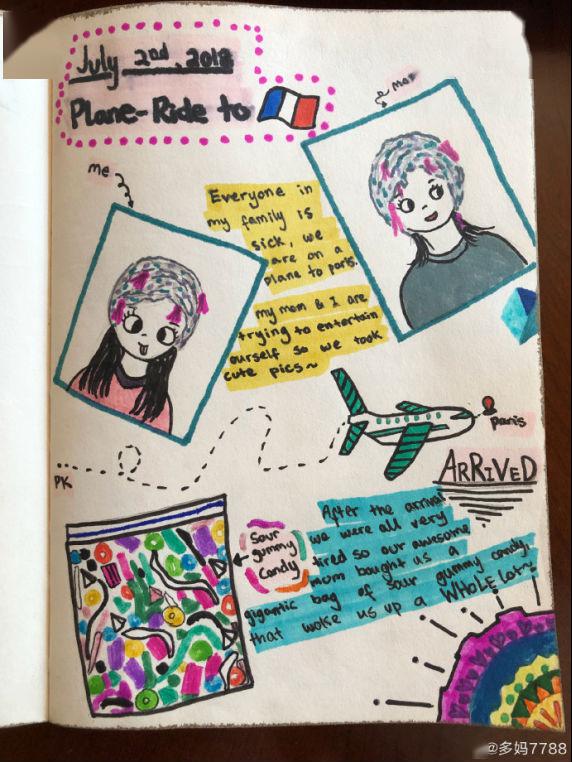 July 2nd, 2018
Plane-Ride to
mom
me
Everyone in
my family is
sick, we
are on a
plane to paris.
my mom & I are
trying to entertain
ourself so we took
cute pics~
paris
PK
ARRIVED
sour
gummy
candy
After the arrival
we were all very
tired so our awesome
mom bought us a
gigantic bag of sour gummy candy,
that woke us up a WHOLE lot~
@多妈7788